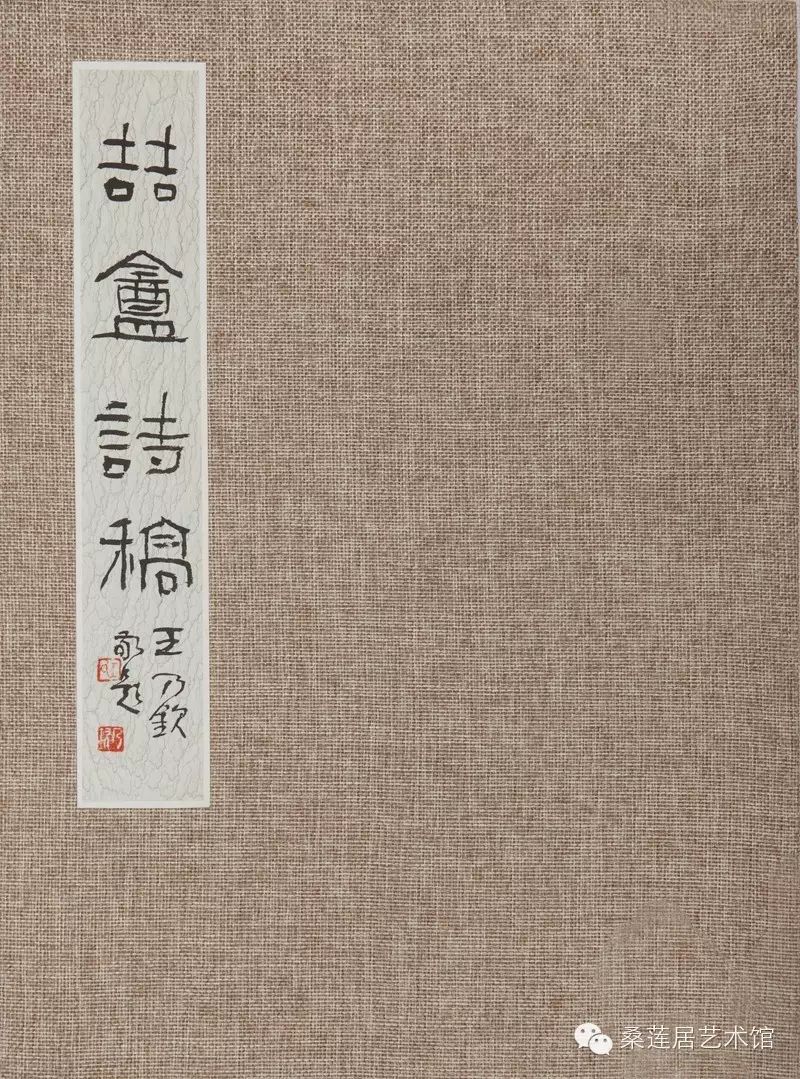 喆盦詩稿
王乃欽
敬題
桑莲居艺术馆